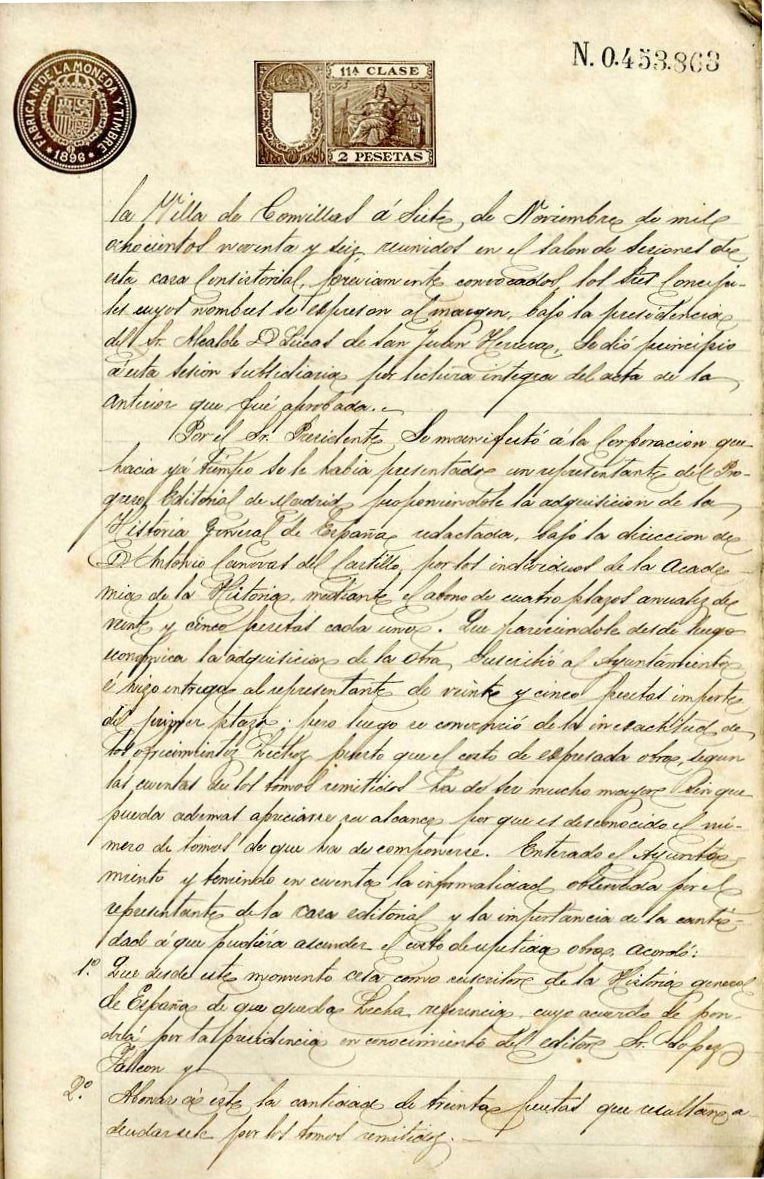 FABRICA Nl. DE LA MONEDA Y TIMBRE
* 1896 *
11ª CLASE
2 PESETAS
N. 0.453.863
la Villa de Comillas á Siete de Noviembre de mil
ochocientos noventa y seis reunidos en el salon de sesiones de
esta casa Consistorial, previamente convocados, los Sres Conceja-
les cuyos nombres se espresan al margen, bajo la presidencia
del Sr. Alcalde D Lucas de San Juan Herrera, Se dió principio
á esta sesion subsidiaria por lectura integra del acta de la
anterior que fué aprobada.
Por el Sr. Presidente Se manifestó á la Corporacion que
hacia yá tiempo se le habia presentado un representante del Pro-
greso Editorial de Madrid proponiendole la adquisicion de la
Historia General de España redactada, bajo la direccion de
D Antonio Canovas del Castillo, por los individuos de la Acade-
mia de la Historia, mediante el abono de cuatro plazos anuales de
veinte y cinco pesetas cada uno. Que pareciendole desde luego
economica la adquisicion de la obra Suscribió al Ayuntamiento
é hizo entrega al representante de veinte y cinco pesetas importe
del primer plazo; pero luego se convenció de la inexactitud de
los ofrecimientos hechos puesto que el costo de espresada obra, segun
las cuentas de los tomos remitidos ha de ser mucho mayor Sin que
pueda ademas apreciarse su alcance por que es desconocido el nú-
mero de tomos de que ha de componerse. Enterado el Ayunta-
miento y teniendo en cuenta la informalidad observada por el
representante de la casa editorial y la importancia de la canti-
dad á que pudiera ascender el costo de repetida obra, acordó:
1º Que desde este momento cesa como suscritor de la Historia general
de España de que queda hecha referencia, cuyo acuerdo se pon-
drá por la presidencia en conocimiento del editor Sr. Lopez
Falcon y
2º Abonar á este la cantidad de treinta pesetas que resultan a-
deudarsele por los tomos remitidos.